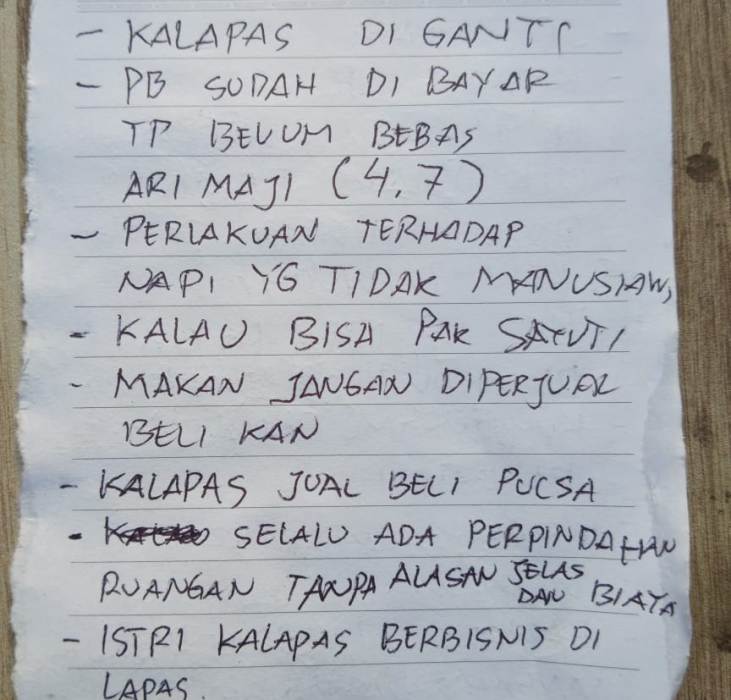 - KALAPAS DI GANTI
- PB SUDAH DI BAYAR
TP BELUM BEBAS
ARI MAJI (4,7)
- PERLAKUAN TERHADAP
NAPI YG TIDAK MANUSIAWI
- KALAU BISA PAK SAYUTI
- MAKAN JANGAN DIPERJUAL
BELI KAN
- KALAPAS JUAL BELI PUCSA
- SELALU ADA PERPINDAHAN
RUANGAN TANPA ALASAN JELAS DAN BIAYA
- ISTRI KALAPAS BERBISNIS DI
LAPAS.